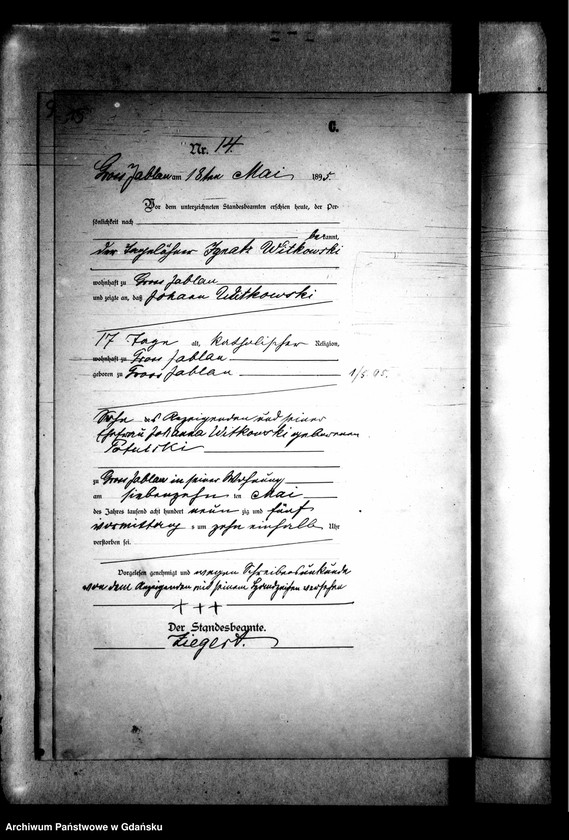 C.
Nr. 14.
Gross Jablau am 18ten Mai 1895.
Vor dem unterzeichneten Standesbeamten erschien heute, der Per-
sönlichkeit nach
bekannt,
der Tagelöhner Ignatz Witkowski
wohnhaft zu Gross Jablau
und zeigte an, daß Johann Witkowski
17 Tage alt, katholischer Religion,
wohnhaft zu Gross Jablau
geboren zu Gross Jablau
1/5 95.
Sohn des Anzeigenden und seiner
Ehefrau Johanna Witkowski geborenen
Potulski
zu Gross Jablau in seiner Wohnung
am siebenzehn ten Mai
des Jahres tausend acht hundert neun zig und fünf
vormittag s um zehn einhalb Uhr
verstorben sei.
Vorgelesen genehmigt und wegen Schreibensunkunde
von dem Anzeigenden mit seinem Handzeichen versehen
+ + +
Der Standesbeamte.
Ziegert.
Archiwum Państwowe w Gdańsku